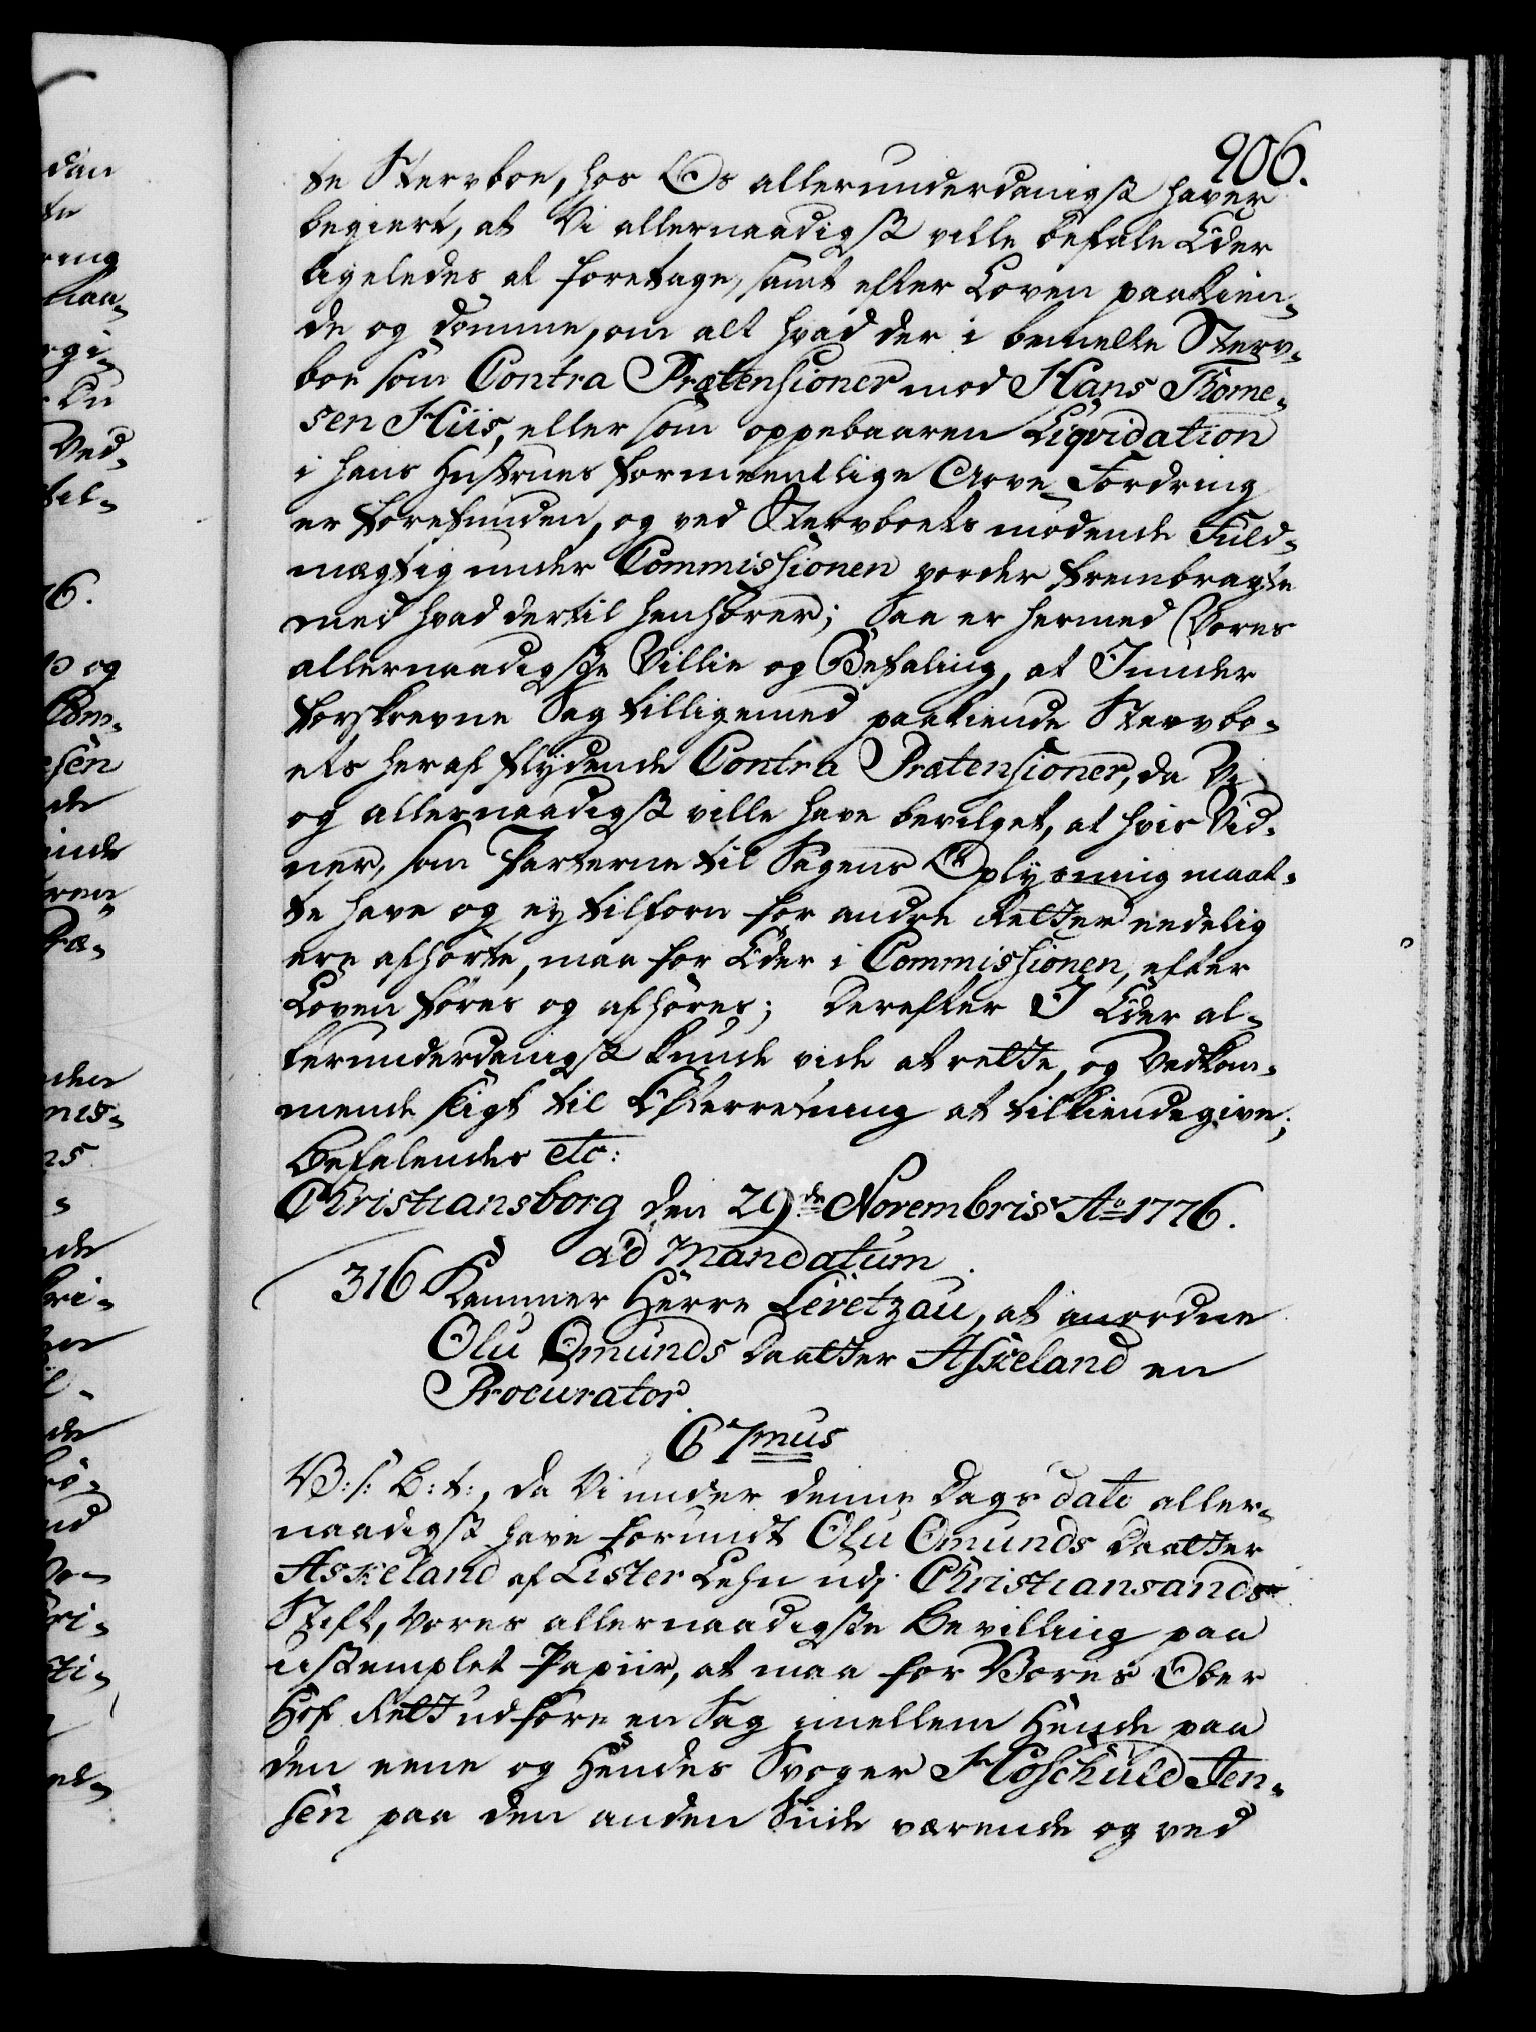 906.
te Stervboe, hos Os allerunderdanigst haver
begiert, at Vi allernaadigst ville befale Eder
ligeledes at foretage, samt efter Loven paakien-
de og dømme, om alt hvad der i bemelte Sterv-
boe som Contra Prætensioner mod Hans Thome-
sen Hiis, eller som oppebaaren Liqvidation
i hans Hustrues formeentlige Arve Fordring
er forefunden, og ved Stervboets mødende Fuld-
mægtig under Commissionen vorder frembragte
med hvad dertil henhører; Saa er hermed Vores
allernaadigste Villie og Befaling, at I under
forskrevne Sag tilligemed paakiende Stervbo-
ets heraf flydende Contra Prætensioner, da Vi
og allernaadigst ville have bevilget, at hvis Vid-
ner, som Parterne til Sagens Oplysning maat-
te have og ey tilforn for andre Retter eedelig
ere afhørte, maa for Eder i Commissionen, efter
Loven føres og afhøres; Derefter I Eder al-
lerunderdanigst kunde vide at rette, og Vedkom-
mende sligt til Efterretning at tilkiendegive;
Befalendes etc:
Christiansborg den 29de Novembris Ao 1776.
ad Mandatum.
316 Kammer Herre Levetzau, at anordne
Olu Omunds Daatter Askeland en
Procurator.
C 7mus
V: s: B: t:, da Vi under denne Dags dato aller-
naadigst have forundt Olu Omunds Daatter
Askeland af Lister Lehn udj Christiansands
Stift, Vores allernaadigste Bevilling paa
ustemplet Papiir, at maa for Vores Ober
Hof Rett udføre en Sag imellem Hende paa
den eene og Hendes Svoger Hoschuld Jen-
sen paa den anden Siide værende og ved